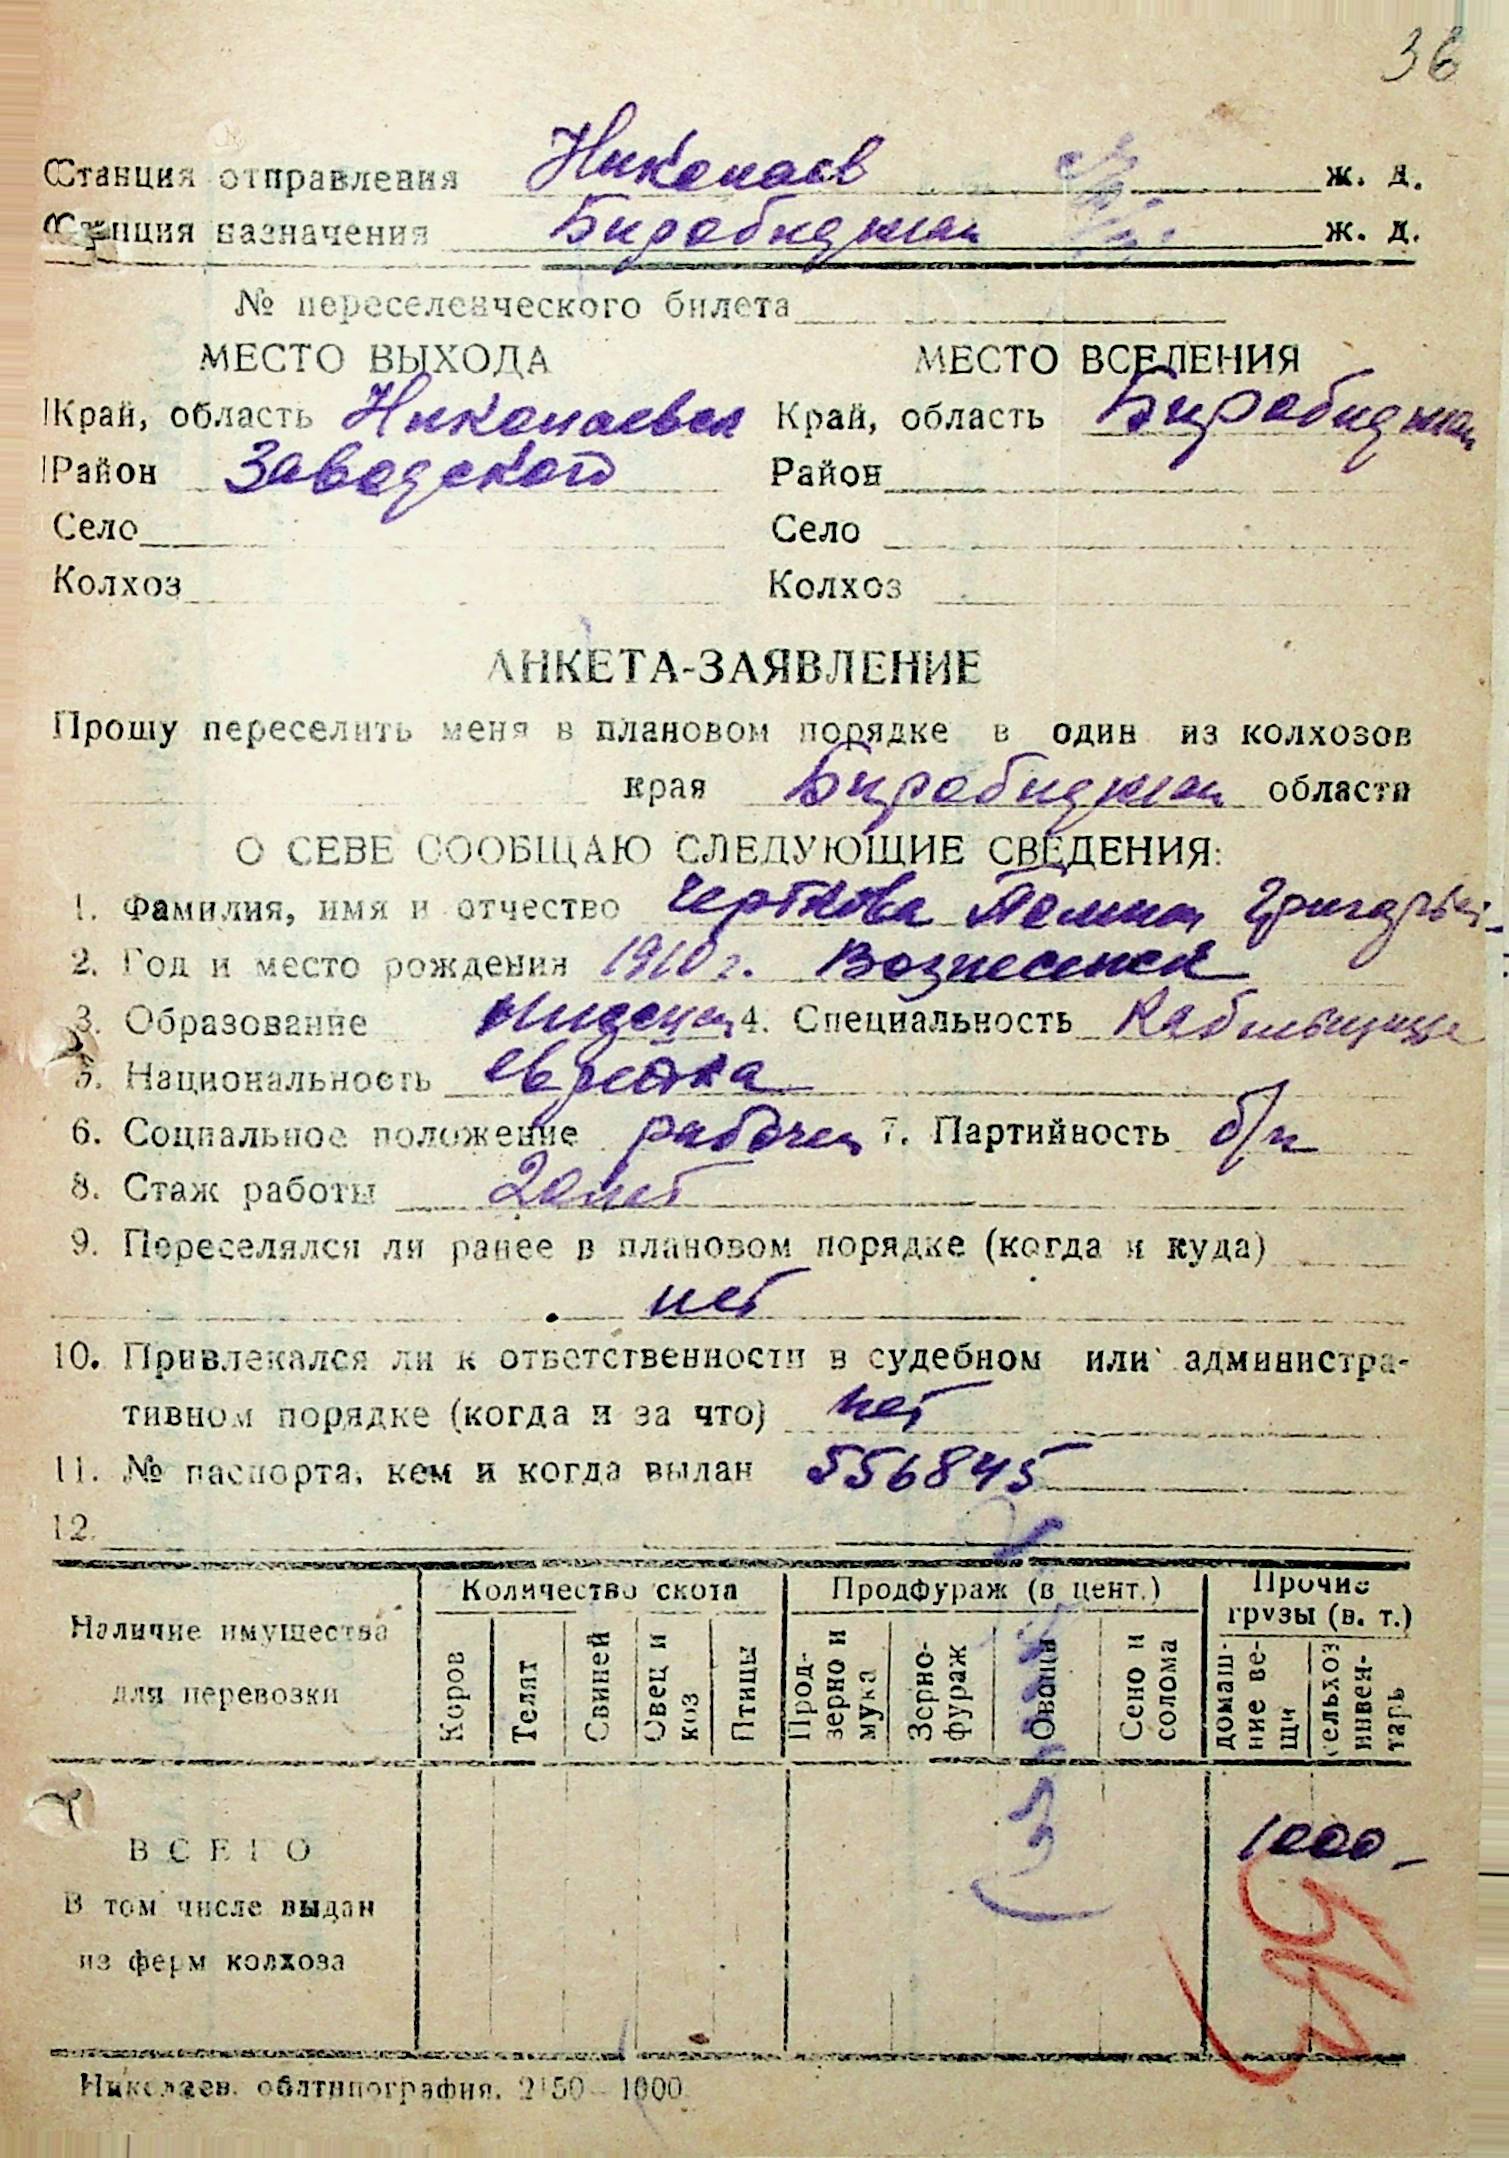 36
Станция отправления Николаев ж. д.
Станция назначения Биробиджан ж. д.
№ переселенческого билета
МЕСТО ВЫХОДА МЕСТО ВСЕЛЕНИЯ
Край, область Николаевск Край, область Биробиджан
Район Заводской Район
Село Село
Колхоз Колхоз
АНКЕТА-ЗАЯВЛЕНИЕ
Прошу переселить меня в плановом порядке в один из колхозов
края Биробиджан области
О СЕБЕ СООБЩАЮ СЛЕДУЮЩИЕ СВЕДЕНИЯ:
1. Фамилия, имя и отчество Черткова Григорьев
2. Год и место рождения 1910 г. Вознесенск
3. Образование 4. Специальность
5. Национальность еврейка
6. Социальное положение рабочен 7. Партийность б/п
8. Стаж работы 20 лет
9. Переселялся ли ранее в плановом порядке (когда и куда)
нет
10. Привлекался ли к ответственности в судебном или администра-
тивном порядке (когда и за что) нет
11. № паспорта, кем и когда выдан 556845
12.
Наличие имущества для перевозки
Количество скота Продфураж (в цент.) Прочие грузы (в. т.)
Коров Телят Свиней Овец и коз Птицы Прод-зерно и мука Зерно-фураж Овощи Сено и солома домаш-ние ве-щи сельхоз инвен-тарь
ВСЕГО 1000-
В том числе выдан
из ферм колхоза
Николаев. облтипография. 2150—1000